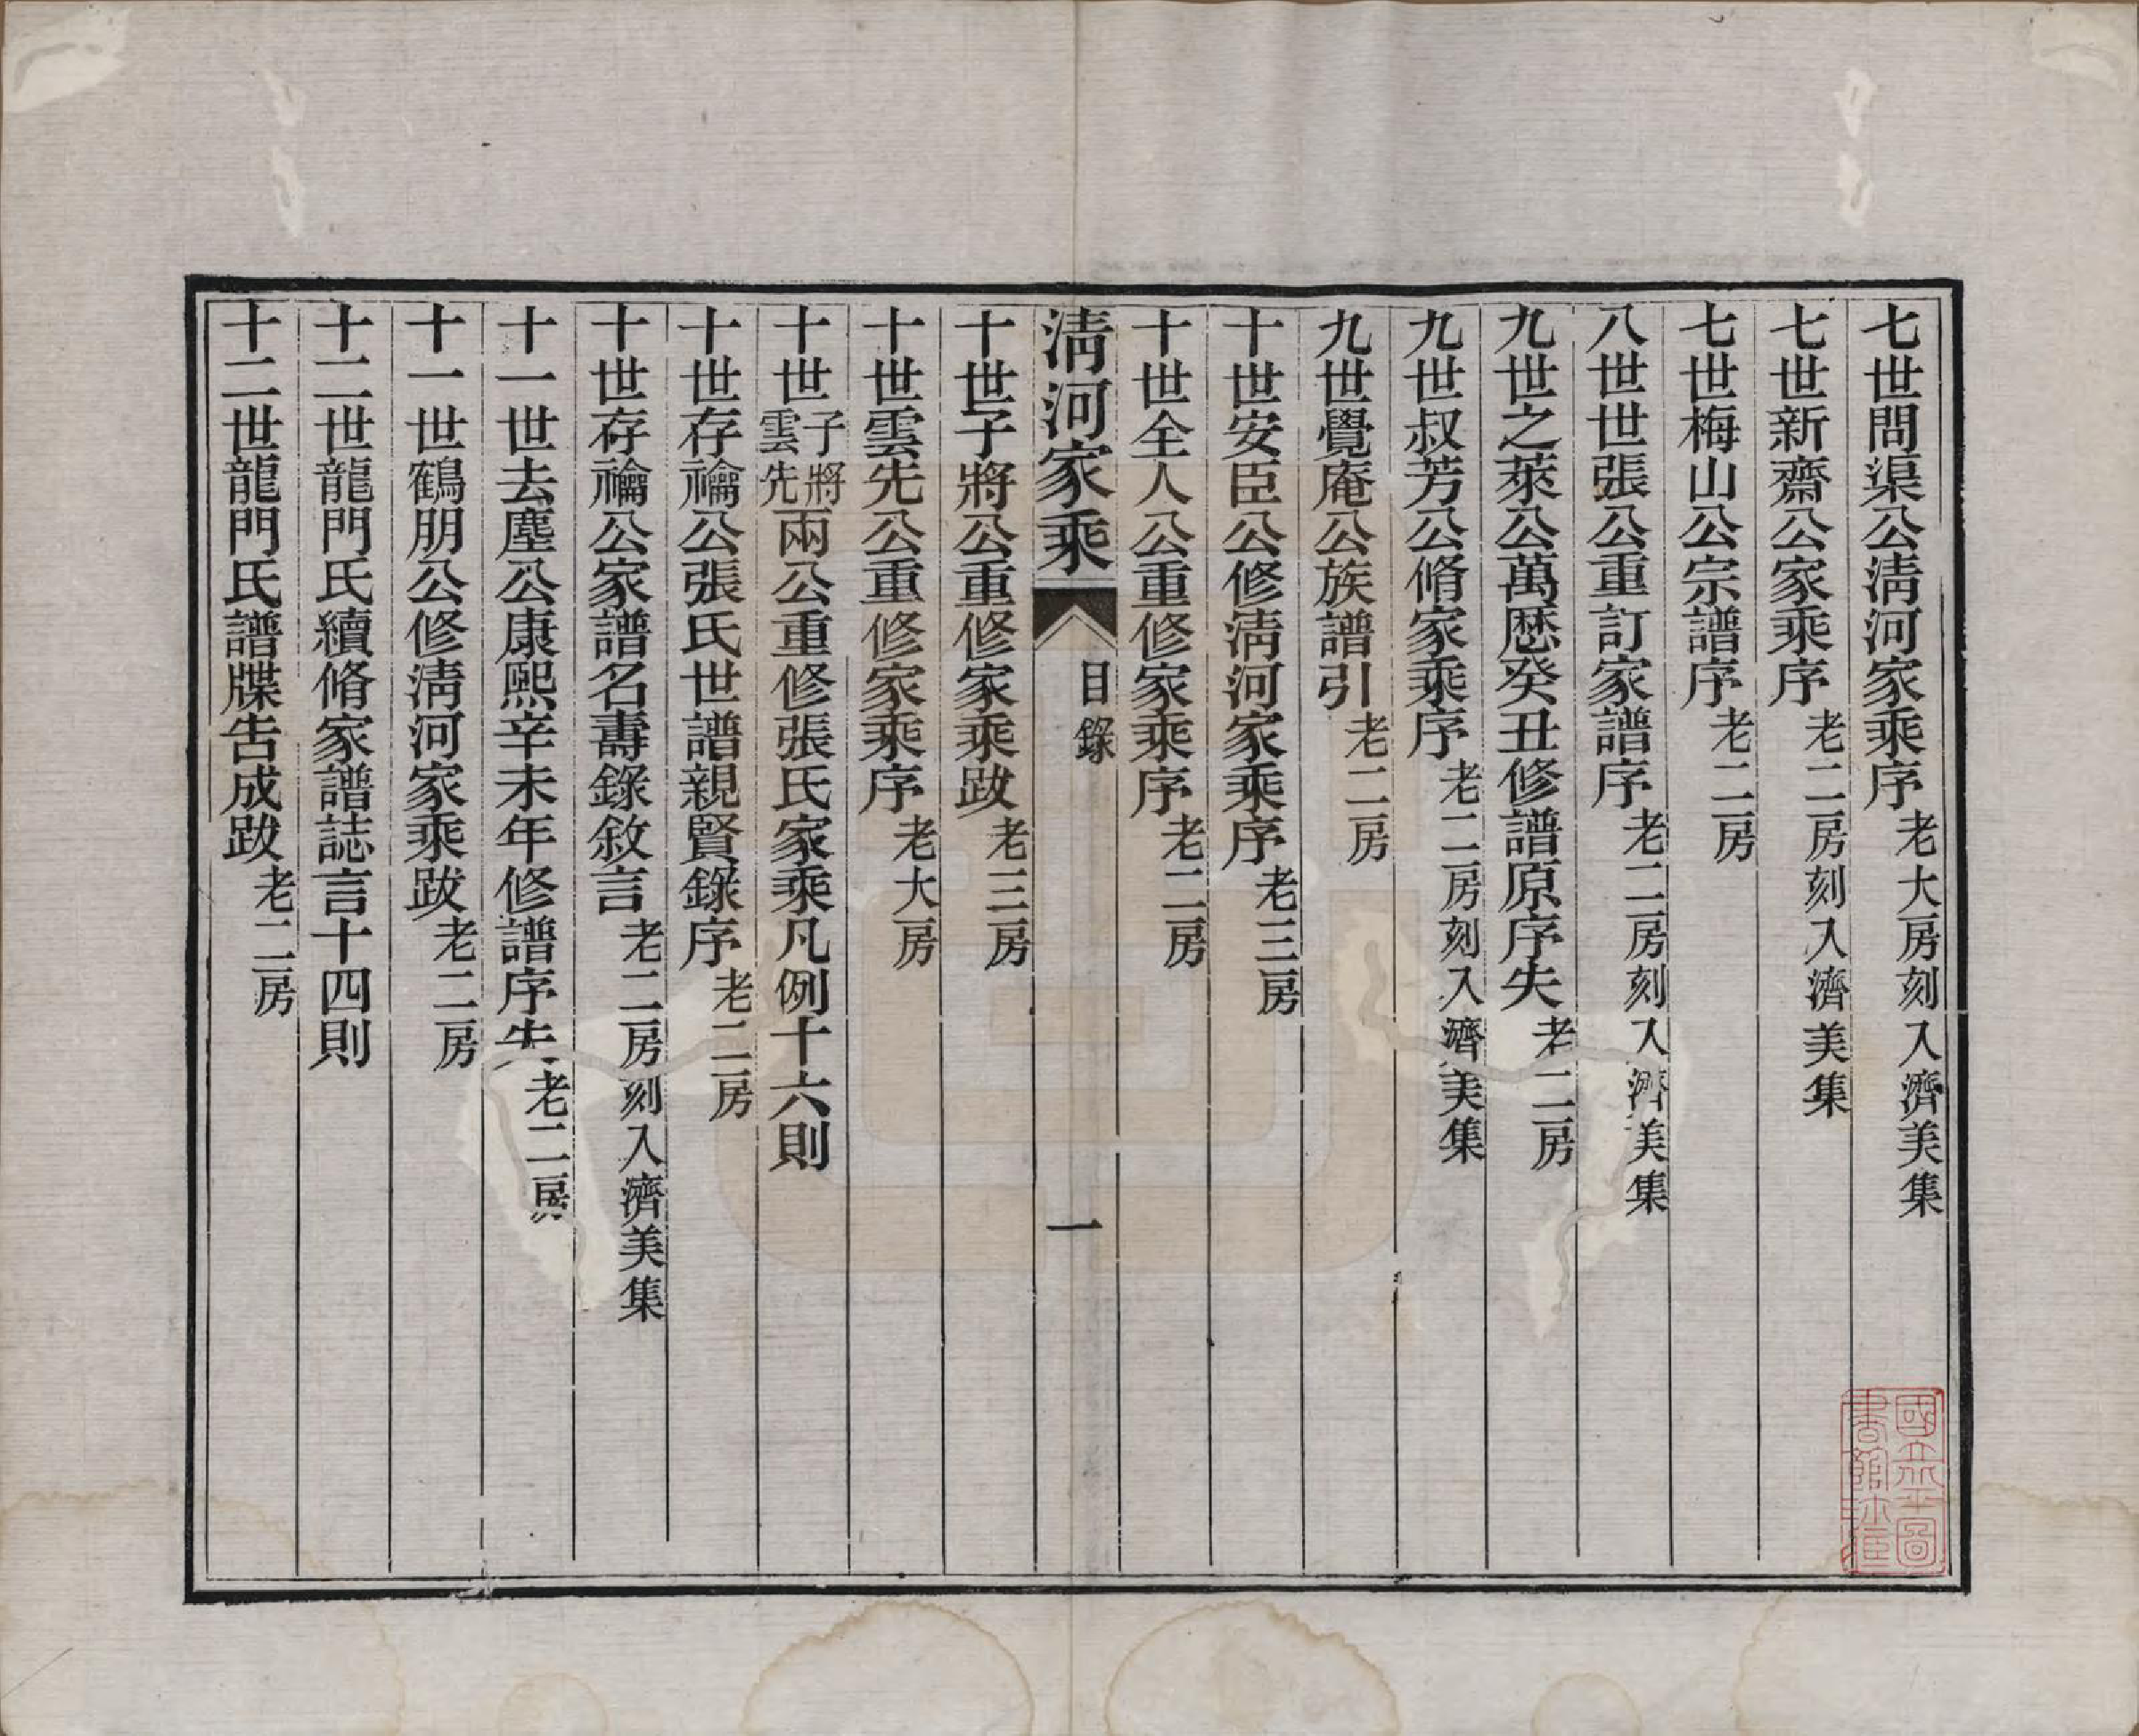 七世問渠公淸河家乘序老大房刻入濟美集
七世新齋公家乘序老二房刻入濟美集
七世梅山公宗譜序老二房
八世世張公重訂家譜序老二房刻入濟美集
九世之萊公萬歷癸丑修譜原序失老二房
九世叔芳公脩家乘序老二房刻入濟美集
九世覺庵公族譜引老二房
十世安臣公修淸河家乘序老三房
十世全人公重修家乘序老二房
淸河家乘 目錄 一
十世子將公重修家乘跋老三房
十世雲先公重修家乘序老大房
十世子將雲先兩公重修張氏家乘凡例十六則
十世存禴公張氏世譜親賢錄序老二房
十世存禴公家譜名壽錄敘言老二房刻入濟美集
十一世去塵公康熙辛未年修譜序失老二房
十一世鶴朋公修淸河家乘跋老二房
十二世龍門氏續脩家譜誌言十四則
十二世龍門氏譜牒告成跋老二房
國立北平圖書館珍藏